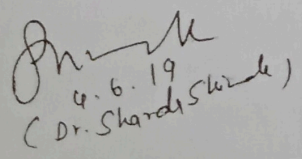 4.6.19
(Dr. Sharda Shinde)